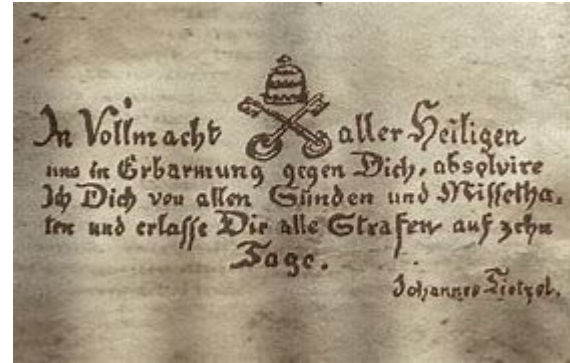 In Vollmacht aller Heiligen
und in Erbarmung gegen Dich, absolvire
Ich Dich von allen Sünden und Missetha-
ten und erlasse Dir alle Strafen auf zehn
Tage.
Johannes Tietzel.